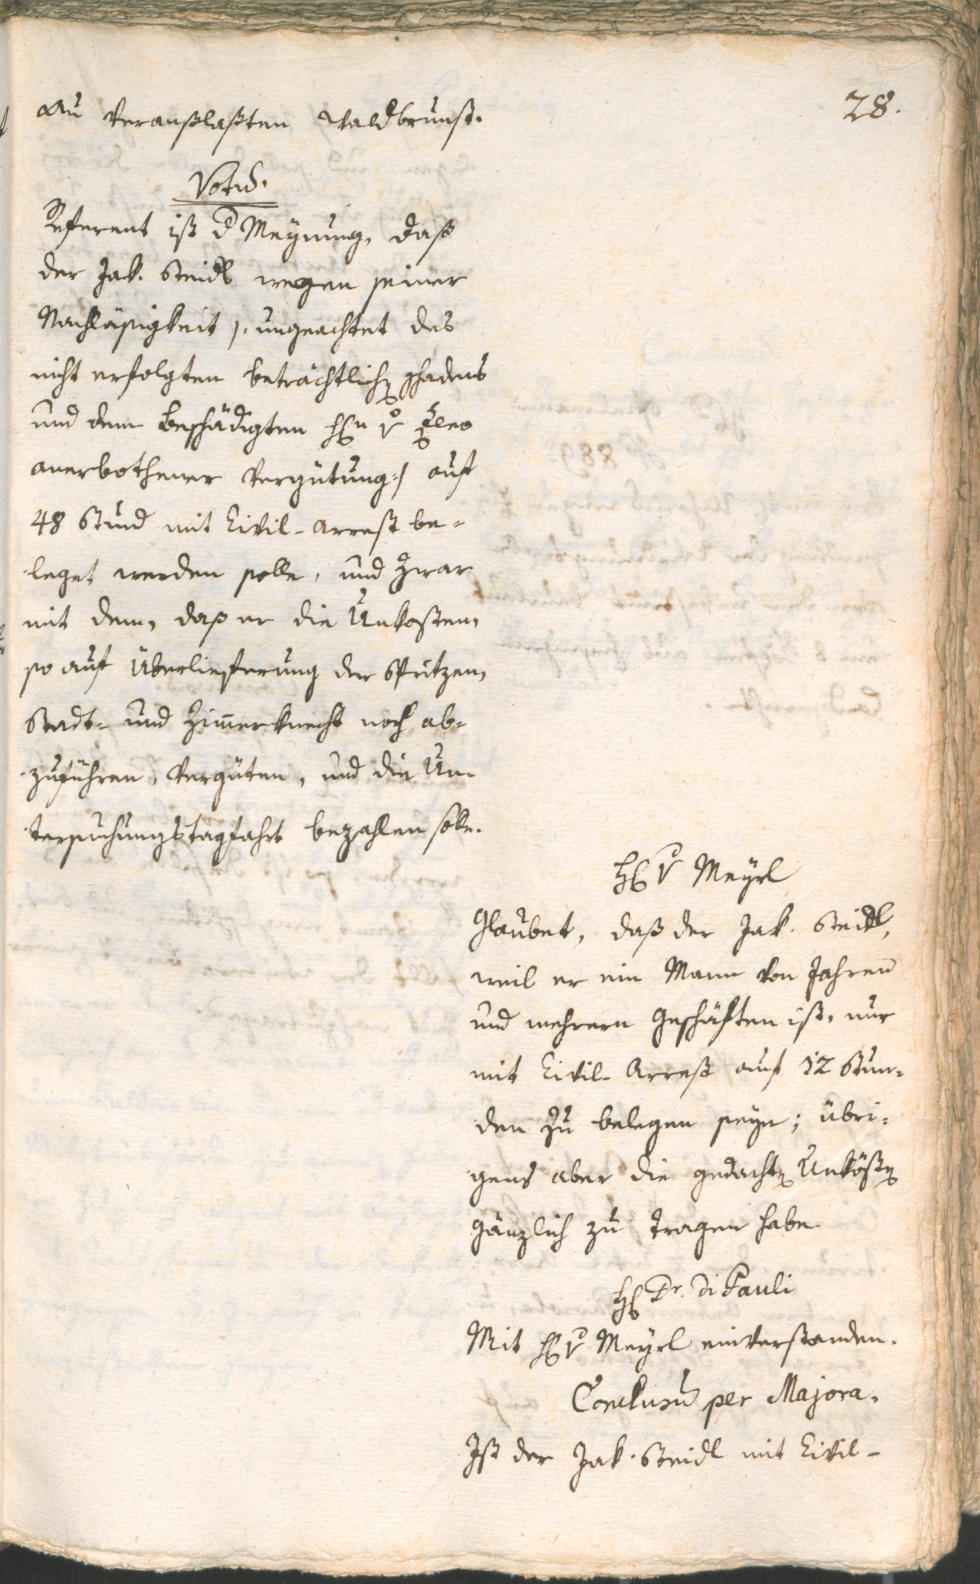 28.
au veranlaßten Waldbrunst.
Votu͞.
Referent ist d Meynung, daß
der Jak. Steidl wegen seiner
Nachläßigkeit /: ungeachtet des
nicht erfolgten beträchtlich Schadens
und dem Beschädigten H v
anerbothener Vergütung :/ auf
48 Stund mit Civil-Arrest be-
leget werden solle, und zwar
mit dem, daß er die Unkosten,
so auf Überlieferung der Spritzen,
Stadt- und Zimmerknecht noch ab-
zuführen, vergüten, und die Un-
tersuchungstagfahrt bezahlen solle.
H v Meyrl
Glaubet, daß der Jak. Steidl,
weil er ein Mann von Jahren
und mehrern Geschäften ist, nur
mit Civil-Arrest auf 12 Stun-
den zu belegen seye; übri-
gens aber die gedacht Unköst
gänzlich zu tragen habe.
H Dr. Di Pauli
Mit H v Meyrl einverstanden.
Conclusu͞ per Majora.
Ist der Jak. Steidl mit Civil-